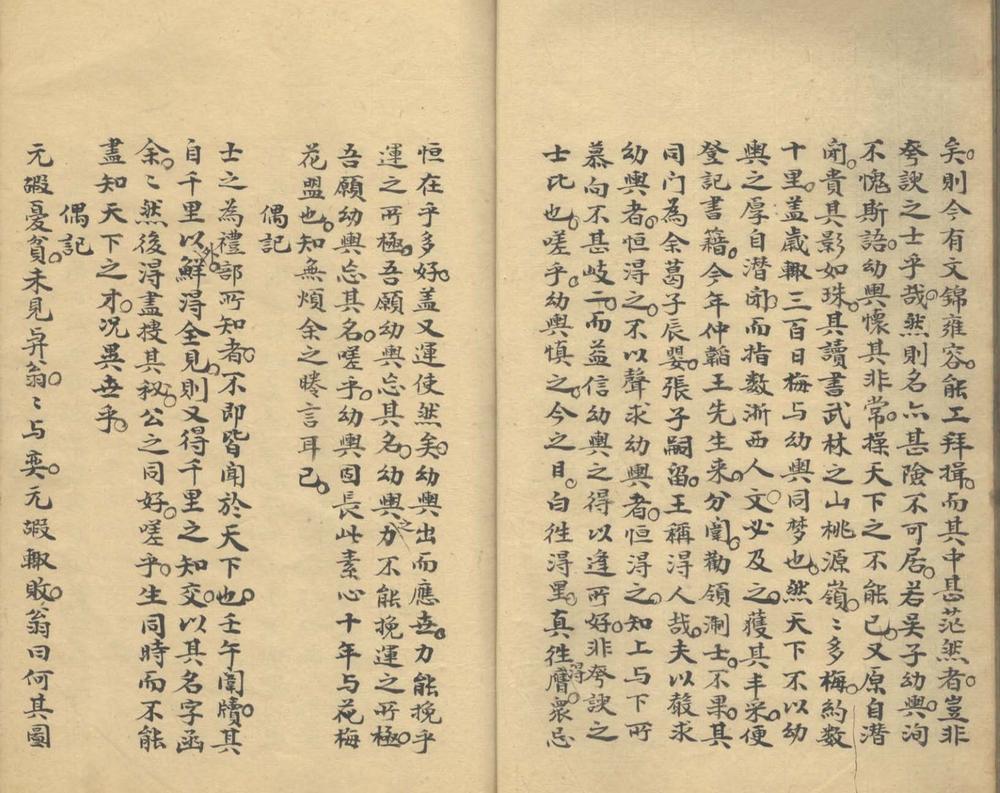 矣則今有文錦雍容能工拜揖而其中甚茫然者豈非
夸諛之士乎哉然則名亦甚險不可居若吴子幼輿洵
不愧斯語幼輿懷其非常操天下之不能已又原自潜
闬貴其影如珠其讀書武林之山桃源嶺〻多梅約數
十里盖歲輙三百日梅与幼輿同梦也然天下不以幼
輿之厚自潜闬而指数浙西人文必及之獲其丰采便
登記書籍今年仲韜王先生来分闈勸領涮士不果其
同門為余葛子辰嬰張子嗣留王稱得人哉夫以毂求
幼輿者恒得之不以聲求幼輿者恒得之知上与下所
慕向不甚岐二而益信幼輿之得以逢所好非夸諛之
士比也嗟乎幼輿慎之今之目白徃得黑真徃得贗衆忌
恒在乎多好盖又運使然矣幼輿出而應世力能挽乎
運之所極吾願幼輿忘其名幼輿之力不能挽運之所極
吾願幼輿忘其名嗟乎幼輿固長此素心十年与花梅
花盟也知無煩余之賸言耳已
偶記
士之為禮部所知者不即皆聞於天下也壬午闈牘其
自千里以外鮮得全見則又得千里之知交以其名字函
余〻然後得盡搜其秘公之同好嗟乎生同時而不能
盡知天下之才况異世乎
偶記
元嘏憂貧未見弈翁〻与奕元嘏輙敗翁曰何其圖